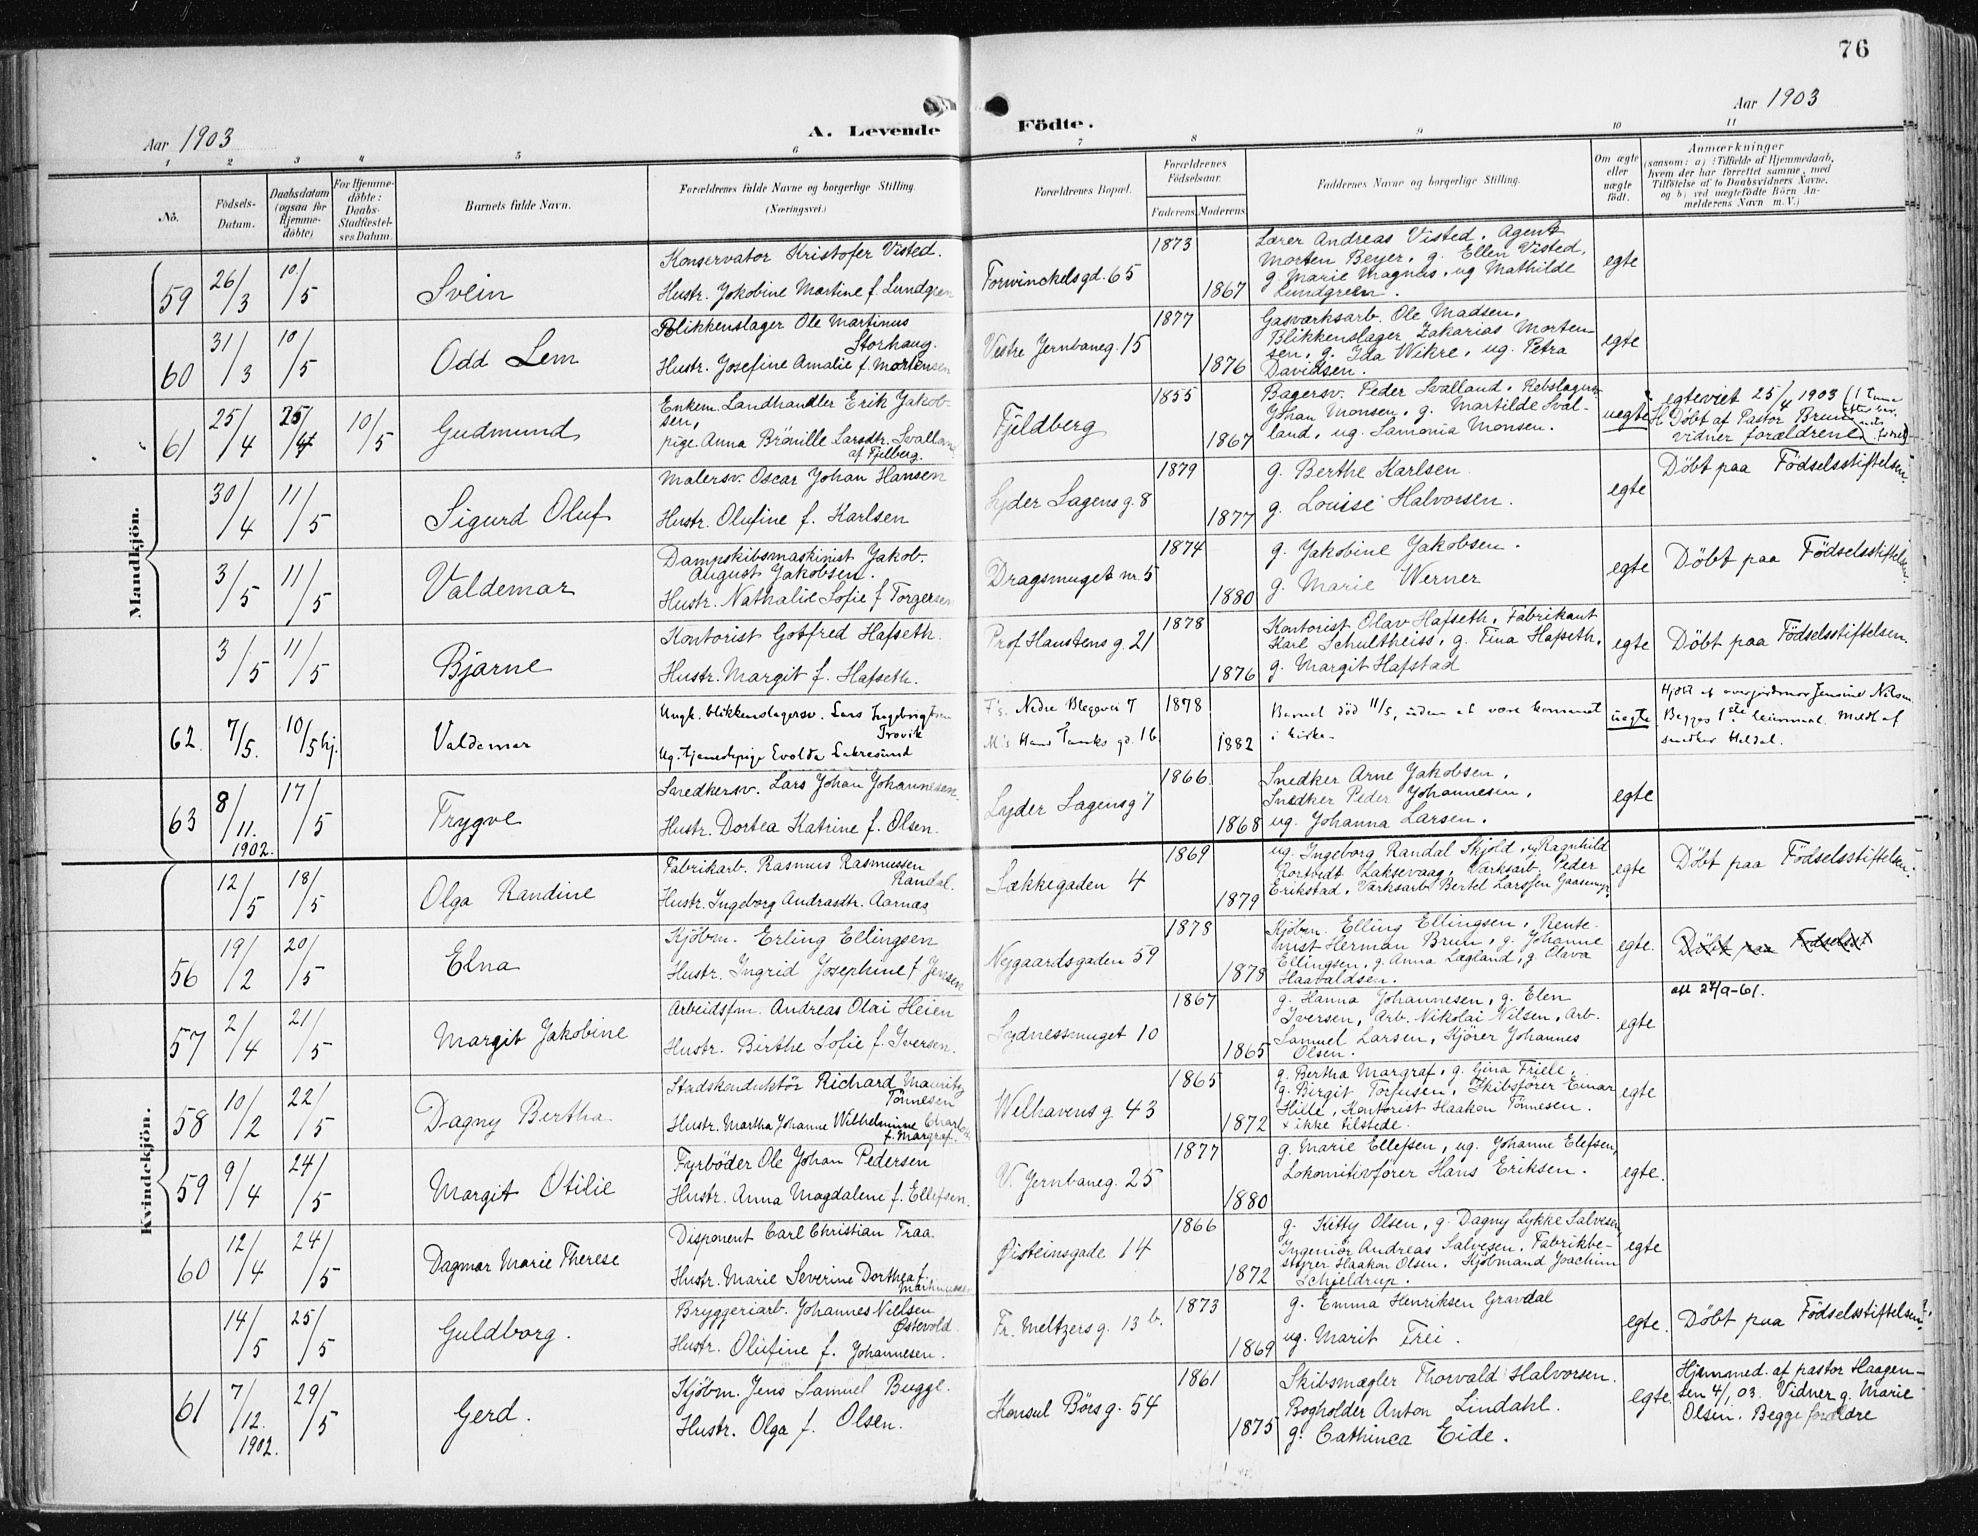 76
Aar 1903
A. Levende Födte.
Aar 1903
1 2 3 4 5 6 7 8 9 10 11
No.
Födsels-Datum.
Daabsdatum (ogsaa for Hjemmedöbte)
For Hjemmedöbte: Daabs-Stadfæstelses Datum.
Barnets fulde Navn.
Forældrenes fulde Navne og borgerlige Stilling. (Næringsvei.)
Forældrenes Bopæl.
Forældrenes Födselsaar.
Faderens Moderens
Faddernes Navne og borgerlige Stilling.
Om ægte eller uægte födt.
Anmærkninger
(saasom: a) : Tilfælde af Hjemmedaab,
hvem der har forrettet samme, med
Tilföielse af to Daabsvidners Navne,
og b) ved uægtefödte Börn An-
melderens Navn m. V.)
Mandkjön.
59 26/3 10/5 Svein
Konservator Kristofer Visted.
Hustr. Jakobine Martine f. Lundgren
Forwinckelsgd. 65 1873 1867
Lærer Andreas Visted. Agent
Morten Beyer, g. Ellen Visted,
g Marie Magnus, ug Mathilde
Lundgreen.
egte
60 31/3 10/5 Odd Lem
Blikkenslager Ole Martinus
Storhaug.
Hustr. Josefine Amalie f. Mortensen
Vestre Jernbaneg. 15 1877 1876
Gasværksarb. Ole Madsen,
Blikkenslager Zakarias Morten
sen, g. Ida Wikre, ug. Petra
Davidsen.
egte
61 25/4 25/4 10/5 Gudmund
Enkem. Landhandler Erik Jakob-
sen,
pige Anna Brönille Larsdtr. Svalland
af Fjelberg.
Fjeldberg 1855 1867
Bagersv. Peder Svalland. Rebslagersv
Johan Monsen, g. Martilde Sval-
land, ug. Samonia Monsen.
uegte
egteviet 25/4 1903
H Döbt af Pastor Bruun
vidner forældrene
30/4 11/5 Sigurd Oluf
Malersv. Oscar Johan Hansen
Hustr. Olufine f. Karlsen
Lyder Sagens g. 8 1879 1877
g. Berthe Karlsen
g. Louise Halvorsen.
egte
Döbt paa Födselsstiftelsen
3/5 11/5 Valdemar
Dampskibsmaskinist Jakob
August Jakobsen.
Hustr. Nathalie Sofie f Torgersen
Dragsmuget nr. 5 1874 1880
g. Jakobine Jakobsen.
g. Marie Werner
egte
Döbt paa Födselsstiftelsen
3/5 11/5 Bjarne
Kontorist Gotfred Hafseth.
Hustr. Margit f. Hafseth.
Prof Hansteens g. 21 1878 1876
Kontorist Olav Hafseth, Fabrikant
Karl Schultheiss, g. Tina Hafseth,
g. Margit Hafstad
egte
Döbt paa Födselsstiftelsen.
62. 7/5. 10/5 hj. Valdemar
Ungk. blikkenslagersv. Lars Ingebrigtsen
Trovik
Ug. tjenestepige Evolda Lakresund
F's. Nedre Blegevei 7
M's Hans Tanks gd. 16
1878 1882
Barnet död 11/5, uden at være kommet
i kirke.
uegte
Hjdbt af overjordmor Jensine Nilsen
Begges 1ste leiermaal. Meldt af
snedker Heldal.
63 8/11. 1902. 17/5 Trygve
Snedkersv. Lars Johan Johannesen.
Hustr. Dortea Katrine f. Olsen.
Lyder Sagensg 7 1866. 1868
Snedker Arne Jakobsen,
Snedker Peder Johannesen,
ug. Johanna Larsen.
egte
Kvindekjön.
12/5 18/5 Olga Randine
Fabrikarb. Rasmus Rasmussen
Randal.
Hustr. Ingeborg Andrasdtr. Aarnæs
Sækkegaden 4 1869 1879
ug. Ingeborg Randal Skjold, ug Ragnhild
Laksevaag, Værksarb. Peder
Erikstad, Værksarb. Bertel Larssen
egte
Döbt paa Födselsstiftelsen.
56 19/2 20/5 Elna
Kjöbm. Erling Ellingsen
Hustr. Ingrid Josephine f Jensen
Nygaardsgaden 59 1878 1878
Kjöbm. Elling Ellingsen, Rente-
nist Herman Brun, g. Johanne
Ellingsen, g. Anna Lægland, g. Olava
Haavaldsen.
egte.
Döbt paa Födselsst
57 2/4 21/5 Margit Jakobine
Arbeidsfm. Andreas Olai Heien
Hustr. Birthe Sofie f. Iversen.
Sydnessmuget 10 1867 1865
g. Hanna Johannesen, g. Elen
Iversen, Arb. Nikolai Nilsen, Arb.
Samuel Larsen, Kjörer Johannes
Olsen.
egte
att 27/9-61.
58 10/2 22/5 Dagny Bertha
Stadskonduktör Richard Mauritz
Tönnesen
Hustr. Martha Johanne Wilhelmine Charlotte
f. Margraf.
Welhavens g. 43 1865 1872
g. Bertha Margraf, g. Gina Friele,
g. Birgit Torjusen, Skibsförer Einar
Hille, Kontorist Haakon Tönnesen.
+ ikke tilstede.
egte
59 9/4 24/5 Margit Otilie
Fyrböder Ole Johan Pedersen
Hustr. Anna Magdalene f. Ellefsen.
V. Jernbaneg. 25 1877 1880
g. Marie Ellefsen, ug. Johanne Elefsen,
Lokomitivförer Hans Eriksen.
egte.
60 12/4 24/5 Dagmar Marie Therese
Disponent Carl Christian Traa.
Hustr. Marie Severine Dorthea f.
Martinussen
Øisteinsgade 14 1866 1872
g. Kitty Olsen, g. Dagny Lykke Salvesen
Ingeniör Andreas Salvesen. Fabrikbe-
styrer Haakon Olsen. Kjöbmand Joachim
Schjeldrup.
egte
14/5 25/5 Guldborg.
Bryggeriarb. Johannes Nielsen
Østevold
Hustr. Olufine f. Johannesen.
Fr. Meltzers g. 13 b. 1873 1869
g. Emma Henriksen Gravdal
ug. Marit Frei.
egte.
Döbt paa Födselsstiftelsen
61 7/12. 1902. 29/5 Gerd.
Kjöbm. Jens Samuel Bugge.
Hustr. Olga f. Olsen.
Konsul Börs g. 54 1861 1875
Skibsmægler Thorvald Halvorsen.
Bogholder Anton Lindahl.
g. Cathinca Eide.
egte.
Hjemmed. af pastor Haagen-
sen 4/1 03. Vidner g. Marie
Olsen. Begge forældre